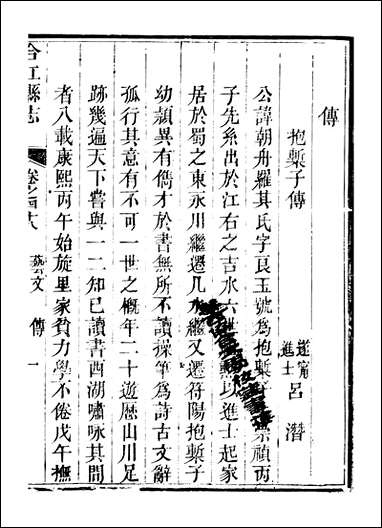 傳
抱槧子傳
遂甯
進士
呂潛
公諱朝舟羅其氏字良玉號爲抱槧子崇禎丙
子先系出於江右之吉水六世以進士起家
居於蜀之東永川繼遷几水繼又遷符陽抱槧子
幼頴異有儁才於書無所不讀操筆爲詩古文辭
孤行其意有不可一世之槪年二十遊歷山川足
跡幾遍天下嘗與一二知已讀書西湖嘯咏其間
者八載康熙丙午始旋里家貧力學不倦戊午撫
合江縣志
卷之四十八
藝文
傳
一